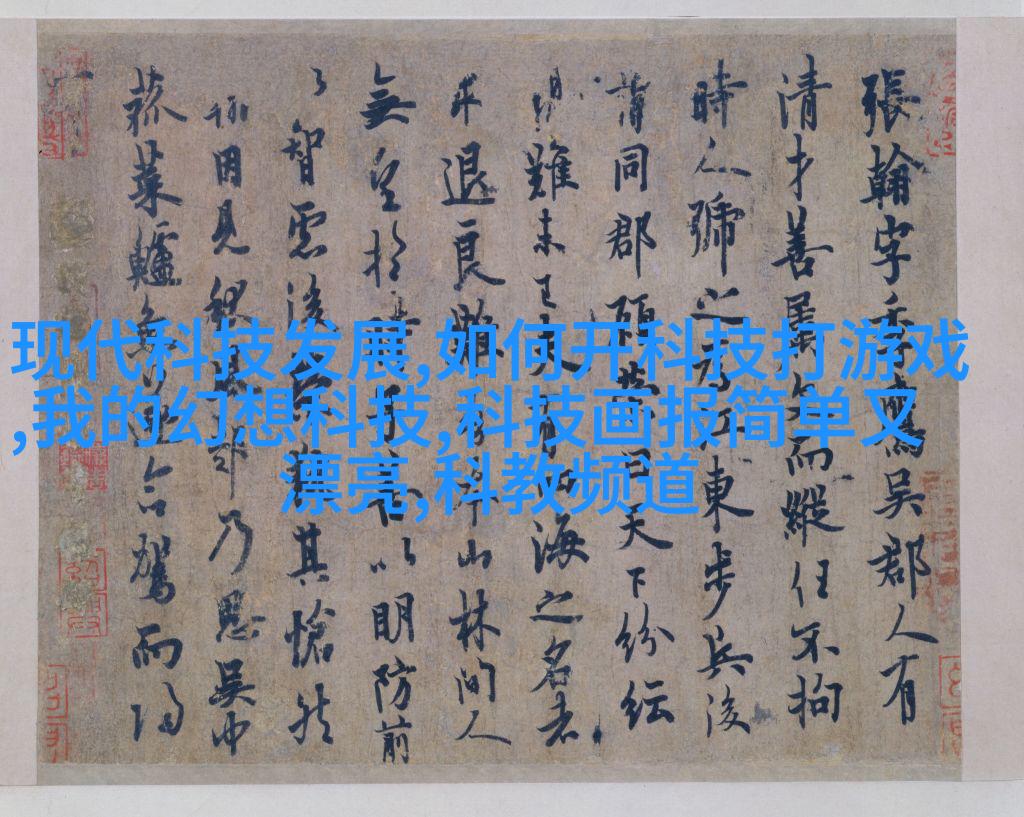 现代科技发展,如何开科技打游戏
,我的幻想科技,科技画报简单又
漂亮,科教频道
張翰字季鷹吳郡人有
清才善屬文而縱任不拘
時人號之為江東步兵後
謂同郡顧榮曰天下紛紜
難未已夫有四海之名者
求退良難吾本山林間人
無望於子善以明防前
以智慮後榮執其愴然
翰因見秋風起乃思吳中
菰菜鱸魚遂命駕而歸